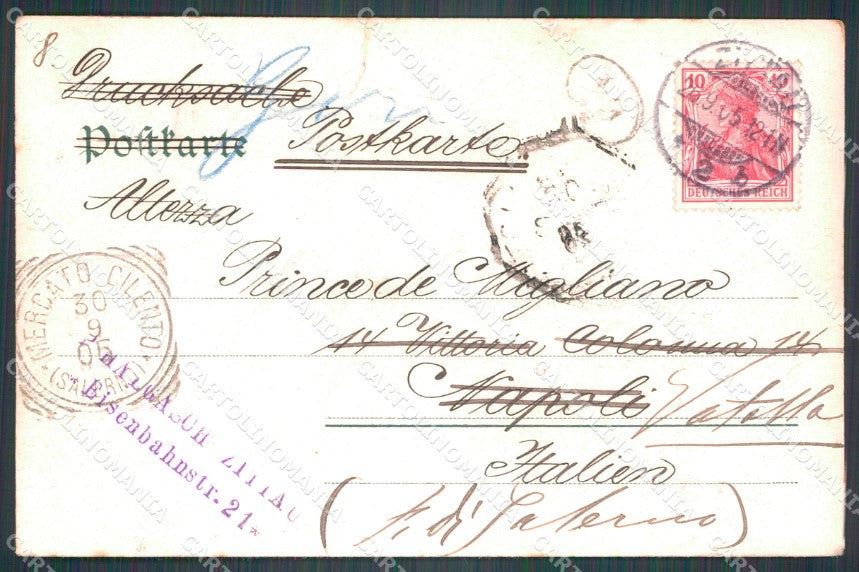 8
Drucksache
Postkarte
Postkarte
Altezza
Prince de Migliano
14 Vittoria Colonna 14
Napoli Vatolla
Italien
(P. di Salerno)
10
DEUTSCHES REICH
ZITTAU
2 b
MERCATO CILENTO
30
9
05
(SALERNO)
MALGASCH ZITTAU
Eisenbahnstr. 21
CARTOLINOMANIA